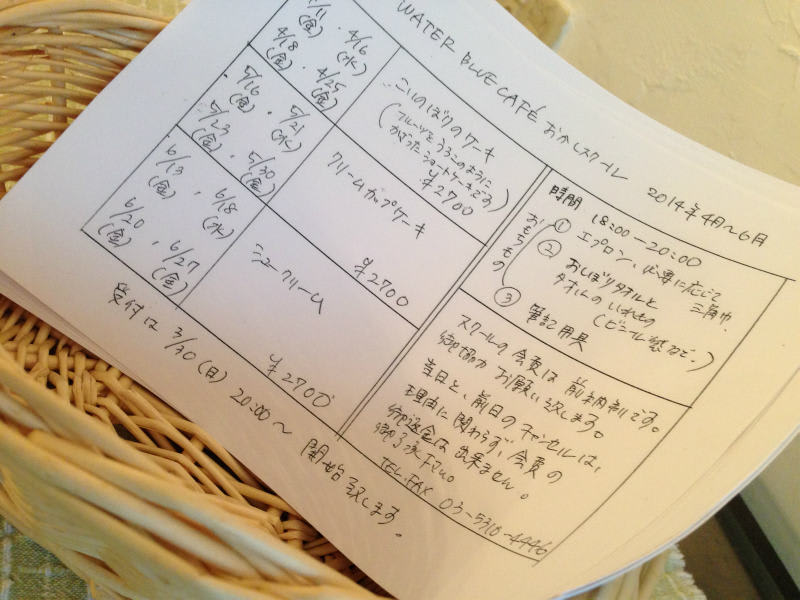 WATER BLUE CAFÉ おかしスクール 2014年4月〜6月
4/11(金)・4/16(水)
4/18(金)・4/25(金)
こいのぼりのケーキ
(フルーツをうろこのように
かざったショートケーキです)
¥2700
5/16(金)・5/21(水)
5/23(金)・5/30(金)
クリームカップケーキ
¥2700
6/13(金)・6/18(水)
6/20(金)・6/27(金)
シュークリーム
¥2700
時間 18:00-20:00
おもちもの
① エプロン、必要に応じて
三角巾
② おしぼりタオルと
タオルのいれもの
(ビニール袋など。)
③ 筆記用具
スクールの会費は前納制です。
御協力お願い致します。
当日と、前日のキャンセルは、
理由に関わらず、会費の
御返金は出来ません。
御了承下さい。
TEL.FAX 03-5310-4446
受付は 3/30(日) 20:00〜 開始致します。